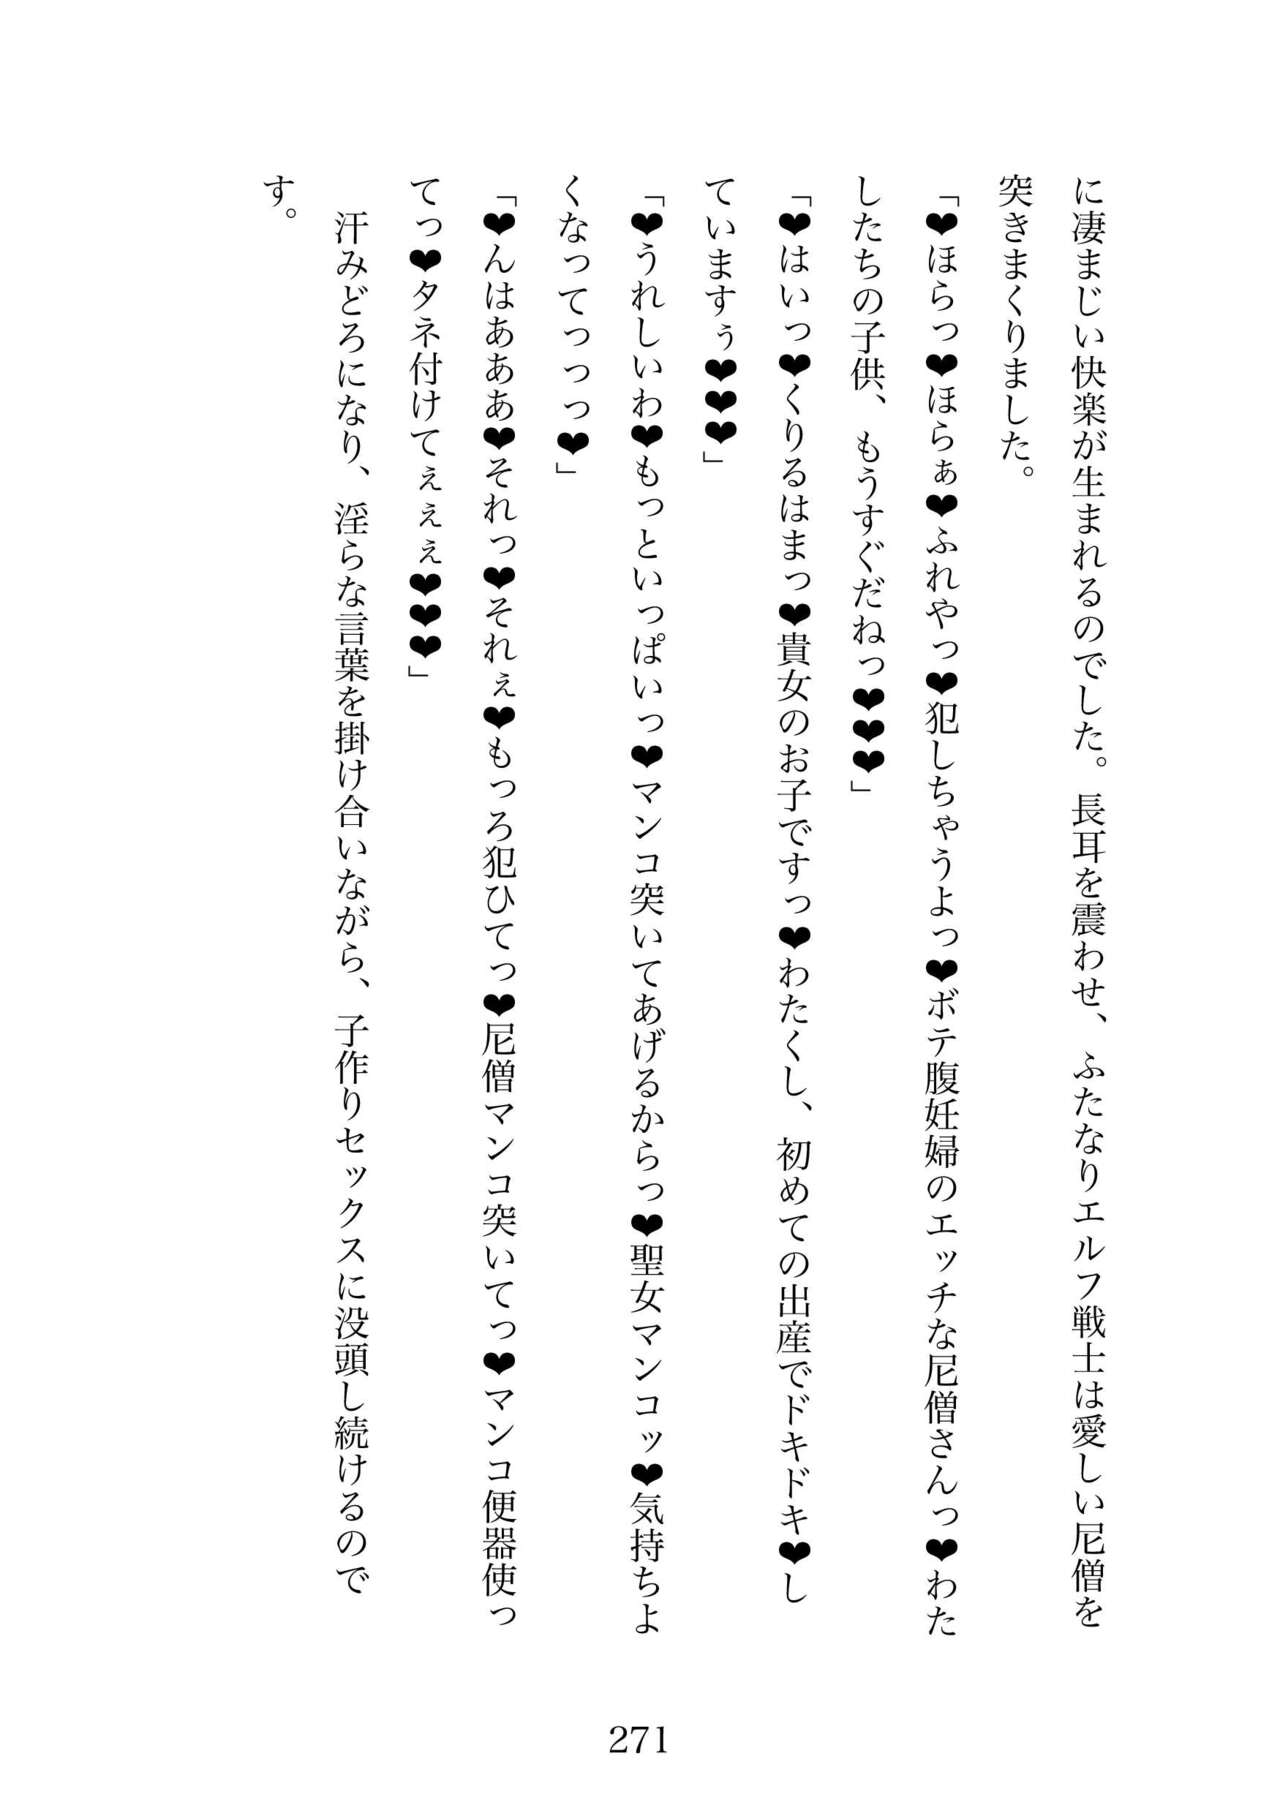 に凄まじい快楽が生まれるのでした。長耳を震わせ、ふたなりエルフ戦士は愛しい尼僧を
突きまくりました。
「❤ほらっ❤ほらぁ❤ふれやっ❤犯しちゃうよっ❤ボテ腹妊婦のエッチな尼僧さんっ❤わた
したちの子供、もうすぐだねっ❤❤❤」
「❤はいっ❤くりるはまっ❤貴女のお子ですっ❤わたくし、初めての出産でドキドキ❤し
ていますぅ❤❤❤」
「❤うれしいわ❤もっといっぱいっ❤マンコ突いてあげるからっ❤聖女マンコッ❤気持ちよ
くなってっっっ❤」
「❤んはあああ❤それっ❤それぇ❤もっろ犯ひてっ❤尼僧マンコ突いてっ❤マンコ便器使っ
てっ❤タネ付けてぇぇぇ❤❤❤」
　汗みどろになり、淫らな言葉を掛け合いながら、子作りセックスに没頭し続けるので
す。
271